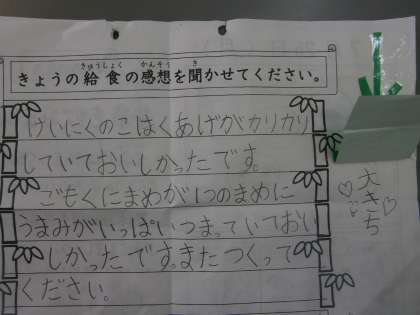 きゅうしょく かんそう き
きょうの給食の感想を聞かせてください。
けいにくのこはくあげがカリカリ
していておいしかったです。
ごもくにまめが1つのまめに
うまみがいっぱいつまっていておい
しかったです。またつくって
ください。
大きち